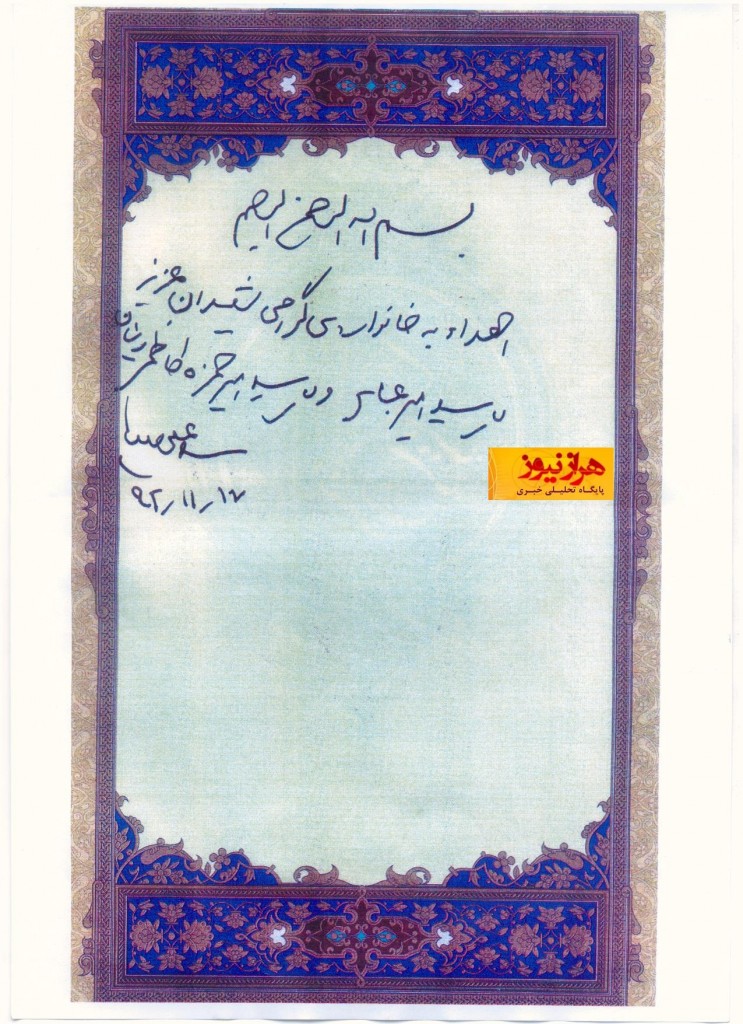 بسم الله الرحمن الرحیم
اهداء به خانواده‌ی گرامی شهیدان عزیز
سید امیر عباس و سید امیر حمزه
۹۲/۱۱/۱۷
هراز نیوز
پایگاه تحلیلی خبری